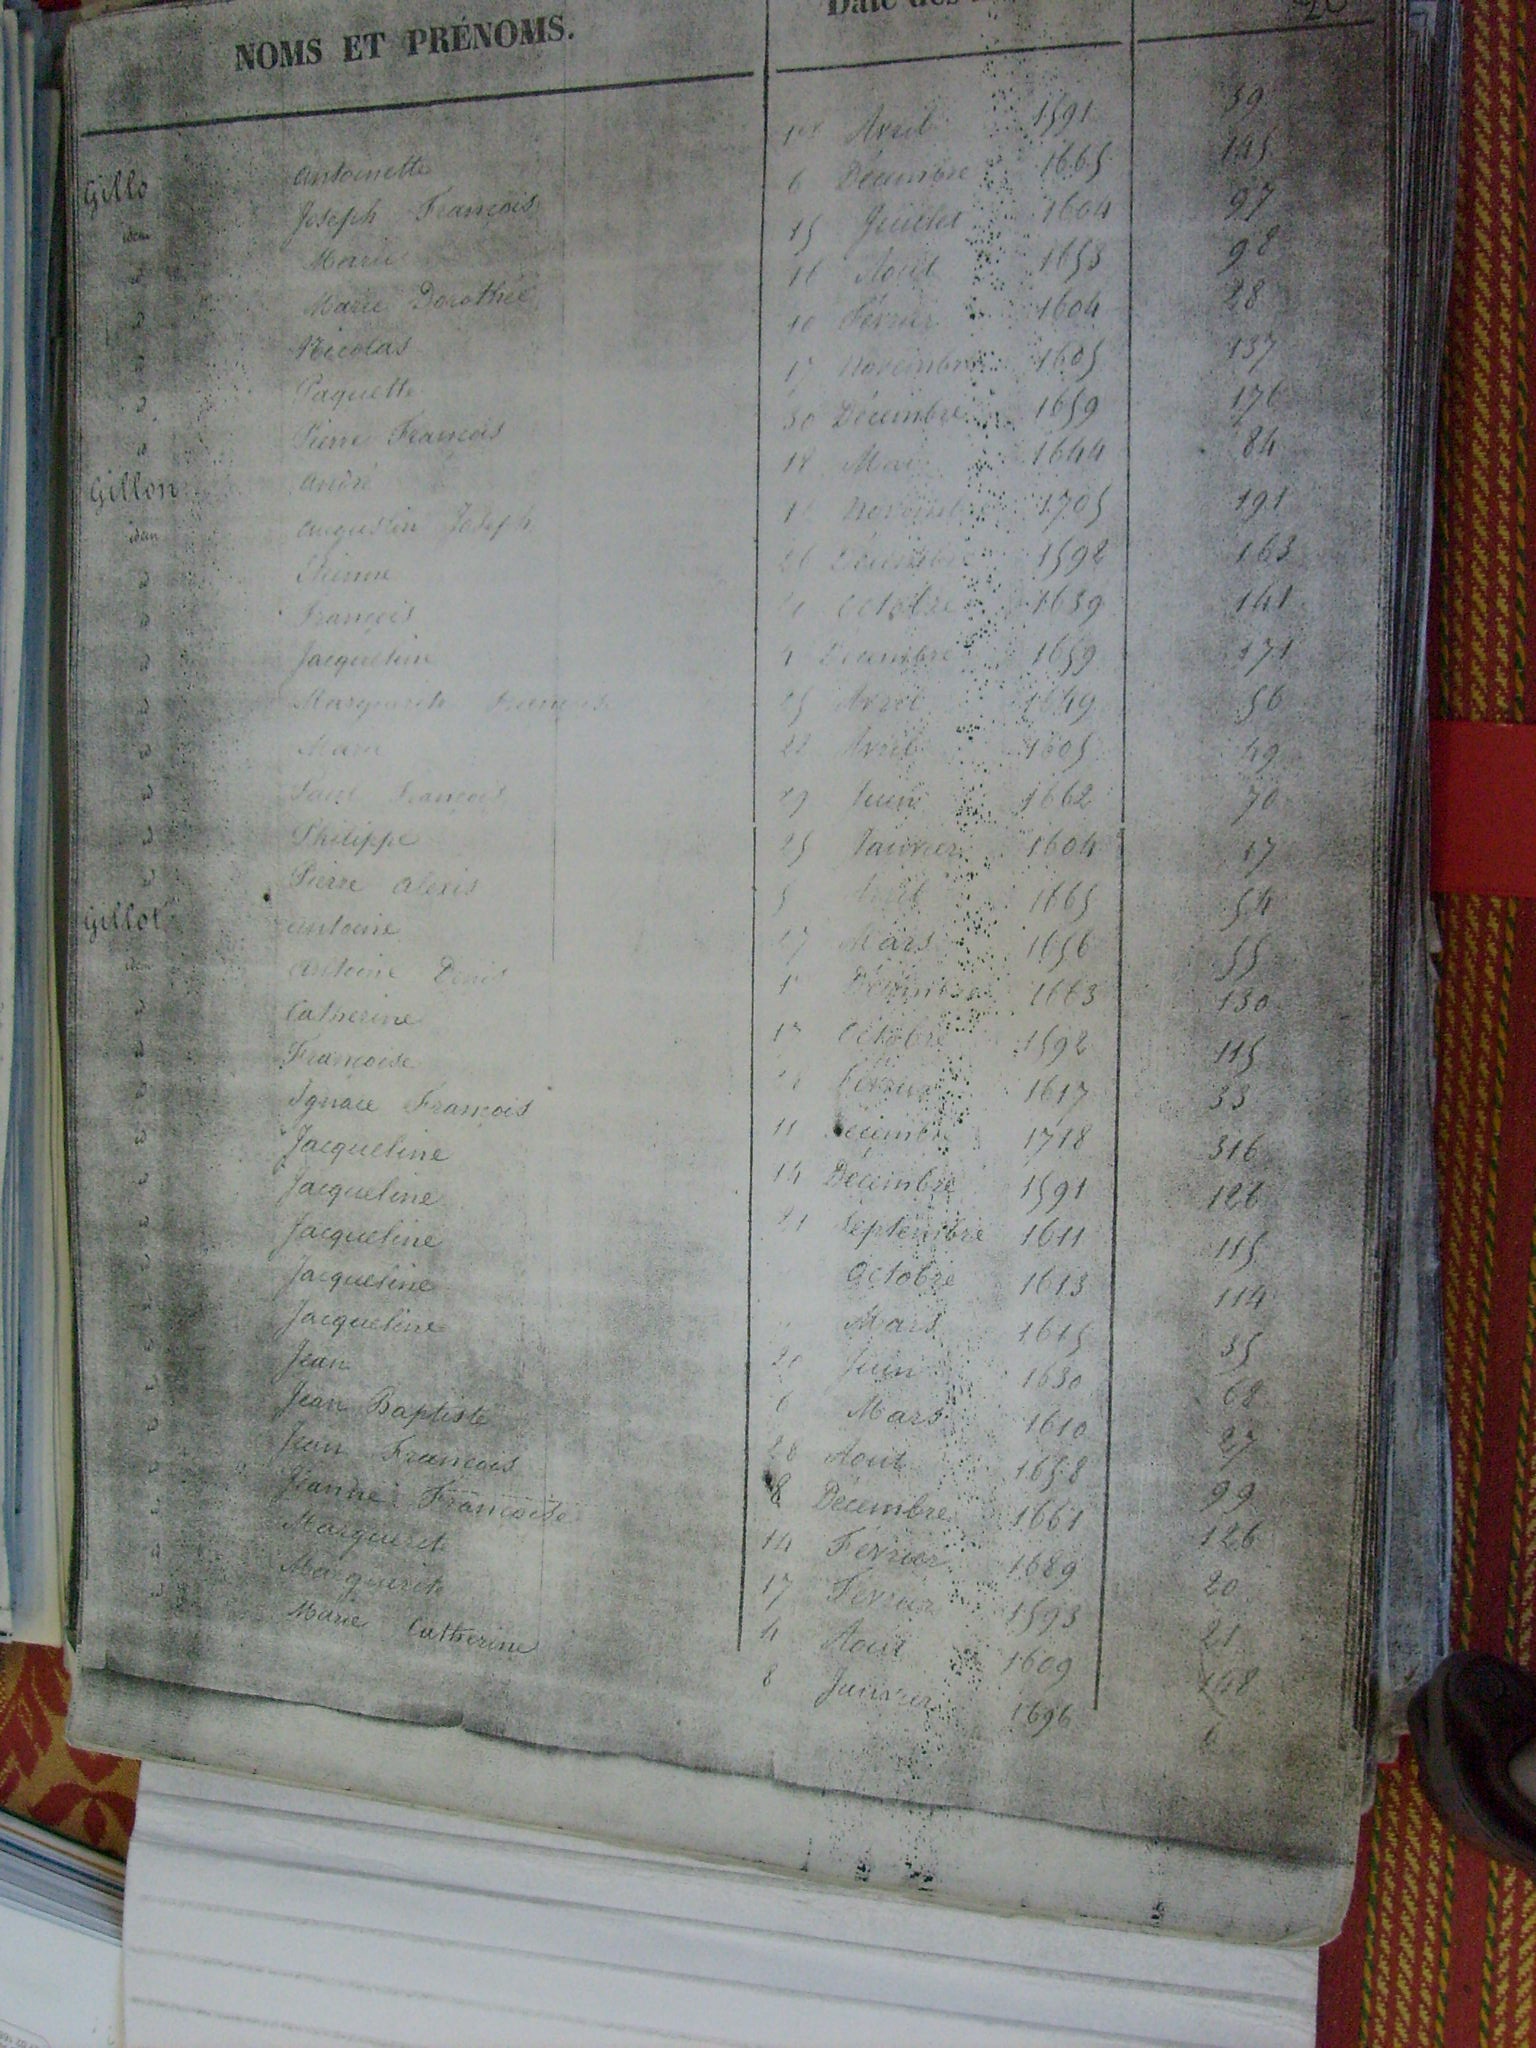 NOMS ET PRÉNOMS. Date des
Gillo Antoinette Avril 1591 59
idem Joseph François 6 Décembre 1665 145
d Marie 15 Juillet 1604 97
d Marie Dorothée 16 Août 1658 98
d Nicolas 10 Février 1604 28
d Paquette 17 Novembre 1605 137
d Pierre François 30 Décembre 1659 176
Gillon André 18 Mai 1644 84
idem Augustin Joseph Novembre 1705 191
d Etienne 26 Décembre 1592 163
d François Octobre 1639 141
d Jacqueline Décembre 1659 171
d Marguerite François 25 Avril 1649 56
d Marie 22 Avril 1605 49
d Paul François 29 Juin 1662 70
d Philippe 25 Janvier 1604 17
d Pierre Alexis 5 Avril 1665 54
Gillot Antoine 27 Mars 1656 55
idem Antoine Denis Décembre 1663 130
d Catherine 17 Octobre 1592 115
d Françoise Février 1617 33
d Ignace François 11 Décembre 1718 316
d Jacqueline 14 Décembre 1591 126
d Jacqueline 21 Septembre 1611 115
d Jacqueline Octobre 1613 114
d Jacqueline Mars 1615 35
d Jacqueline 20 Juin 1630 68
d Jean 6 Mars 1610 27
d Jean Baptiste 28 Août 1658 99
d Jean François 8 Décembre 1661 126
d Jeanne Françoise 14 Février 1689 20
d Marguerite 17 Février 1593 21
d Marguerite 4 Août 1609 148
d Marie Catherine 8 Janvier 1696 6